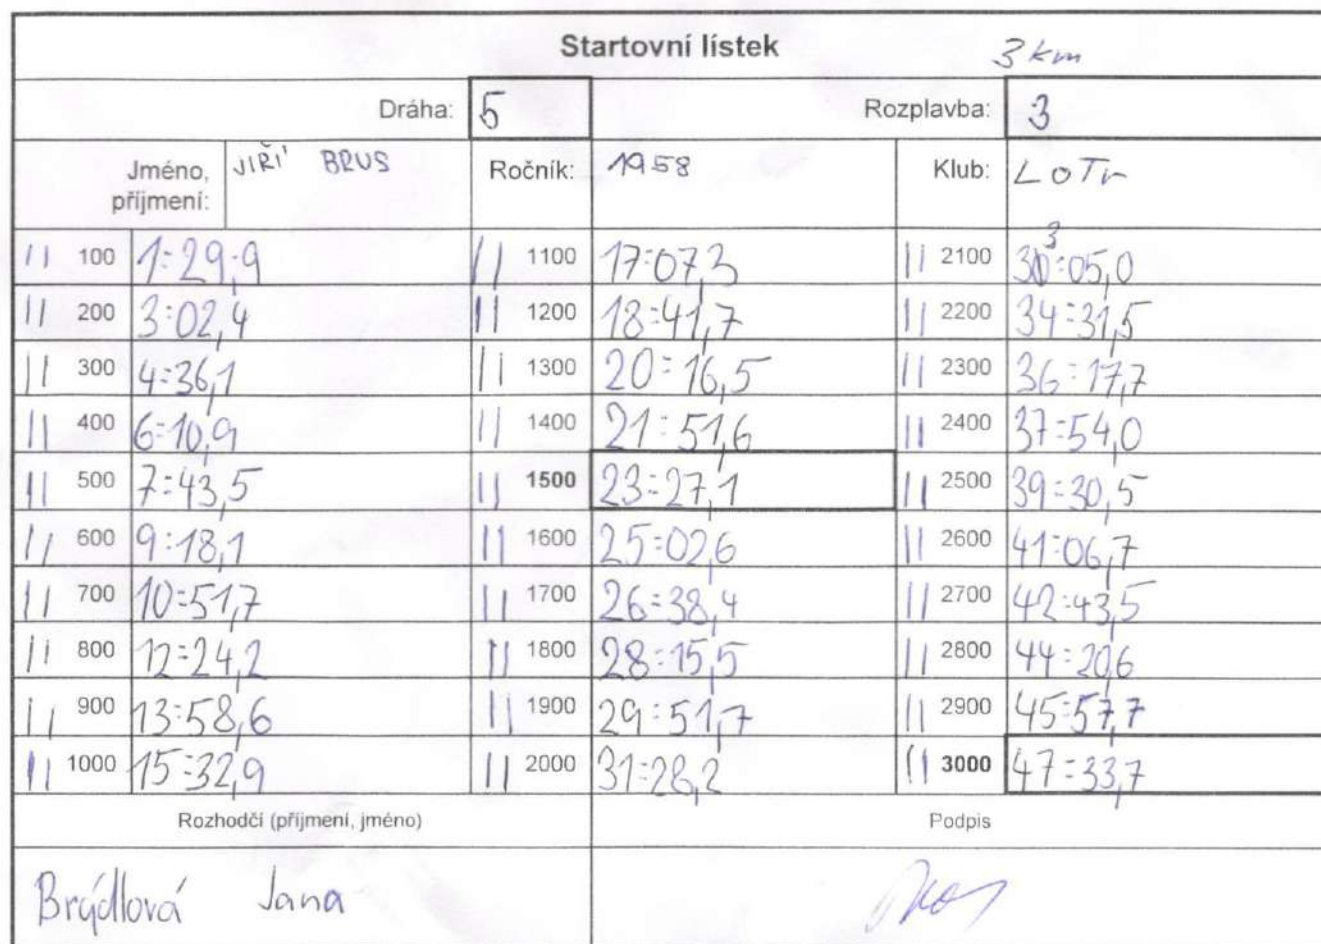 Startovní lístek 3 km
Dráha: 5 Rozplavba: 3
Jméno, příjmení: JIŘÍ BRUS Ročník: 1958 Klub: LoTr
|| 100 1:29,9 || 1100 17:07,3 || 2100 33:05,0
|| 200 3:02,4 || 1200 18:41,7 || 2200 34:31,5
|| 300 4:36,1 || 1300 20:16,5 || 2300 36:17,7
|| 400 6:10,9 || 1400 21:51,6 || 2400 37:54,0
|| 500 7:43,5 || 1500 23:27,1 || 2500 39:30,5
|| 600 9:18,1 || 1600 25:02,6 || 2600 41:06,7
|| 700 10:51,7 || 1700 26:38,4 || 2700 42:43,5
|| 800 12:24,2 || 1800 28:15,5 || 2800 44:20,6
|| 900 13:58,6 || 1900 29:51,7 || 2900 45:57,7
|| 1000 15:32,9 || 2000 31:28,2 || 3000 47:33,7
Rozhodčí (příjmení, jméno) Podpis
Brýdlová Jana